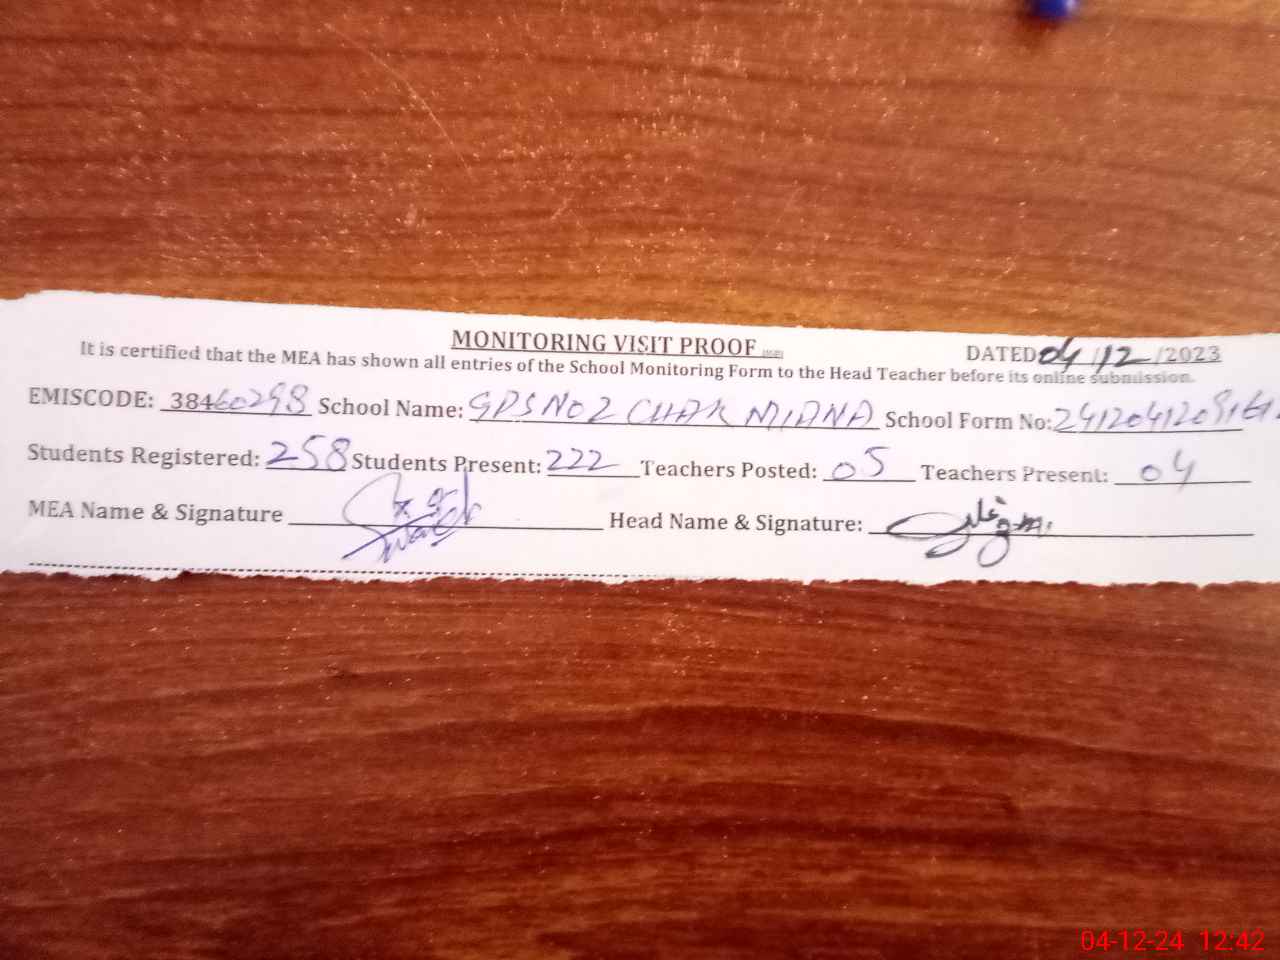 MONITORING VISIT PROOF
DATED 04/12/2023
It is certified that the MEA has shown all entries of the School Monitoring Form to the Head Teacher before its online submission.
EMISCODE: 38460298 School Name: GPS NO 2 CHAK MIANA School Form No:
Students Registered: 258 Students Present: 222 Teachers Posted: 05 Teachers Present: 04
MEA Name & Signature Head Name & Signature:
04-12-24 12:42